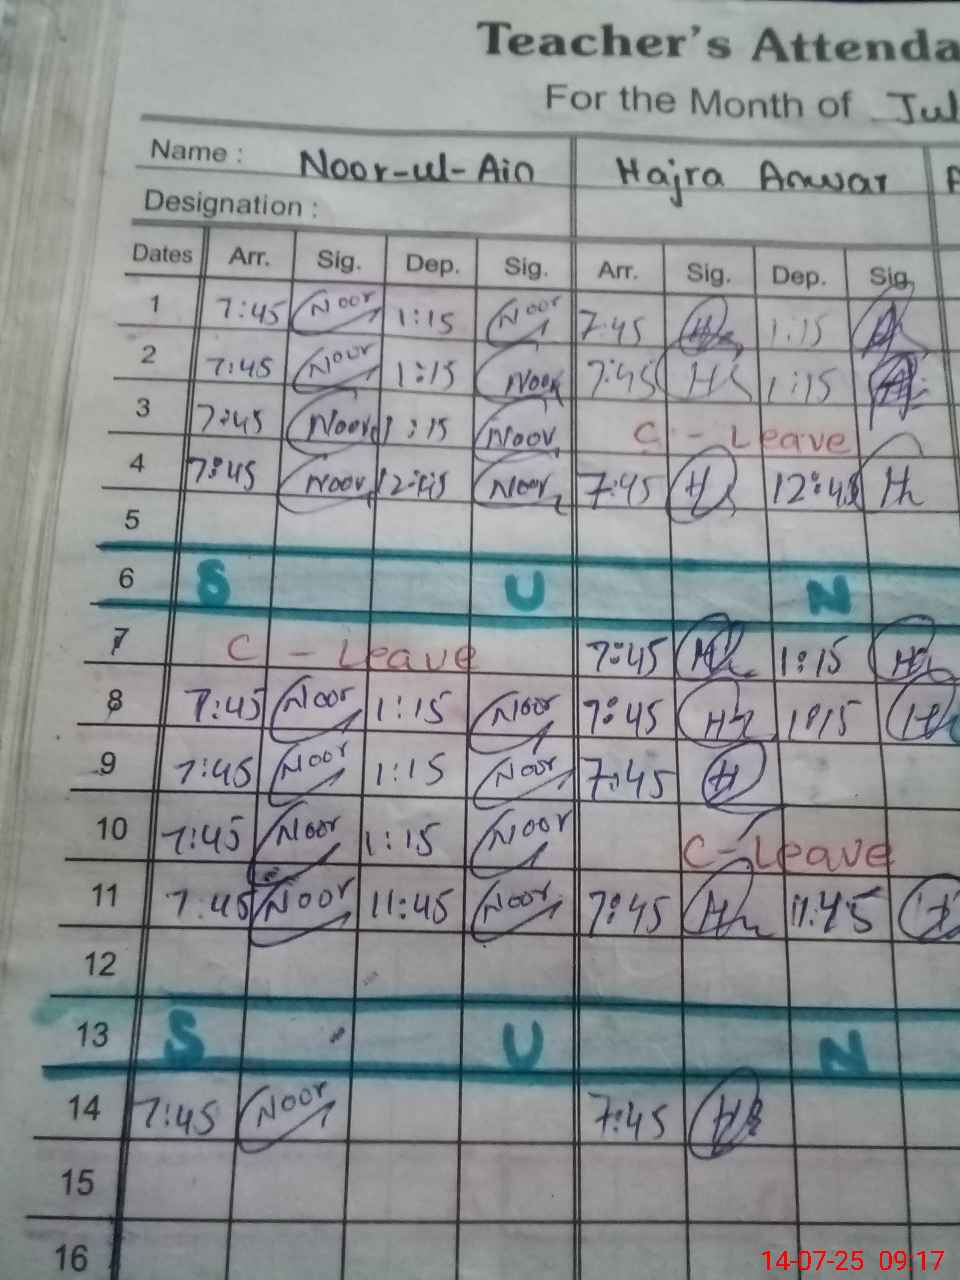 Teacher's Attenda
For the Month of Jul
Name : Noor-ul-Ain Hajra Anwar
Designation :
Dates Arr. Sig. Dep. Sig. Arr. Sig. Dep. Sig.
1 7:45 Noor 1:15 Noor 7:45 1:15
2 7:45 Noor 1:15 Noor 7:45 1:15
3 7:45 Noor 1:15 Noor C - Leave
4 7:45 Noor 12:45 Noor 7:45 12:45
5
6 S U N
7 C - Leave 7:45 1:15
8 7:45 Noor 1:15 Noor 7:45 1:15
9 7:45 Noor 1:15 Noor 7:45
10 7:45 Noor 1:15 Noor C - Leave
11 7:45 Noor 11:45 Noor 7:45 11:45
12
13 S U N
14 7:45 Noor 7:45
15
16
14-07-25 09:17